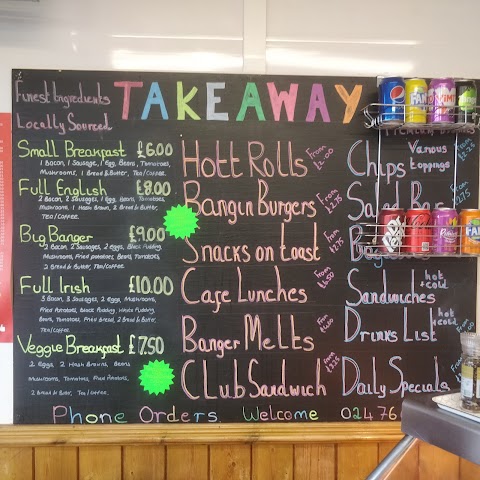 Finest Ingredients
Locally Sourced
TAKEAWAY
Small Breakfast £6.00
1 Bacon, 1 Sausage, 1 Egg, Beans, Tomatoes,
Mushrooms, 1 Bread & Butter, Tea/Coffee.
Full English £8.00
2 Bacon, 2 Sausages, 1 Egg, Beans, Tomatoes,
Mushrooms, 1 Hash Brown, 2 Bread & Butter,
Tea/Coffee.
Big Banger £9.00
2 Bacon, 2 Sausages, 2 Eggs, Black Pudding,
Mushrooms, Fried potatoes, Beans, Tomatoes,
2 Bread & Butter, Tea/Coffee.
Full Irish £10.00
3 Bacon, 3 Sausages, 2 Eggs, Mushrooms,
Fried Potatoes, Black Pudding, White Pudding,
Beans, Tomatoes, Fried Bread, 2 Bread & Butter,
Tea/Coffee
Veggie Breakfast £7.50
2 Eggs, 2 Hash Browns, Beans
Mushrooms, Tomatoes, Fried Potatoes,
2 Bread & Butter, Tea/Coffee.
Hott Rolls From
Bangin Burgers From
Snacks on toast From
Cafe Lunches From
Banger Melts From
Club Sandwich From £3.25
Premium
Chips Various toppings From
Salad Bar From
Sandwiches hot + cold
Drinks List hot + cold
Daily Specials From
Phone Orders Welcome 02476